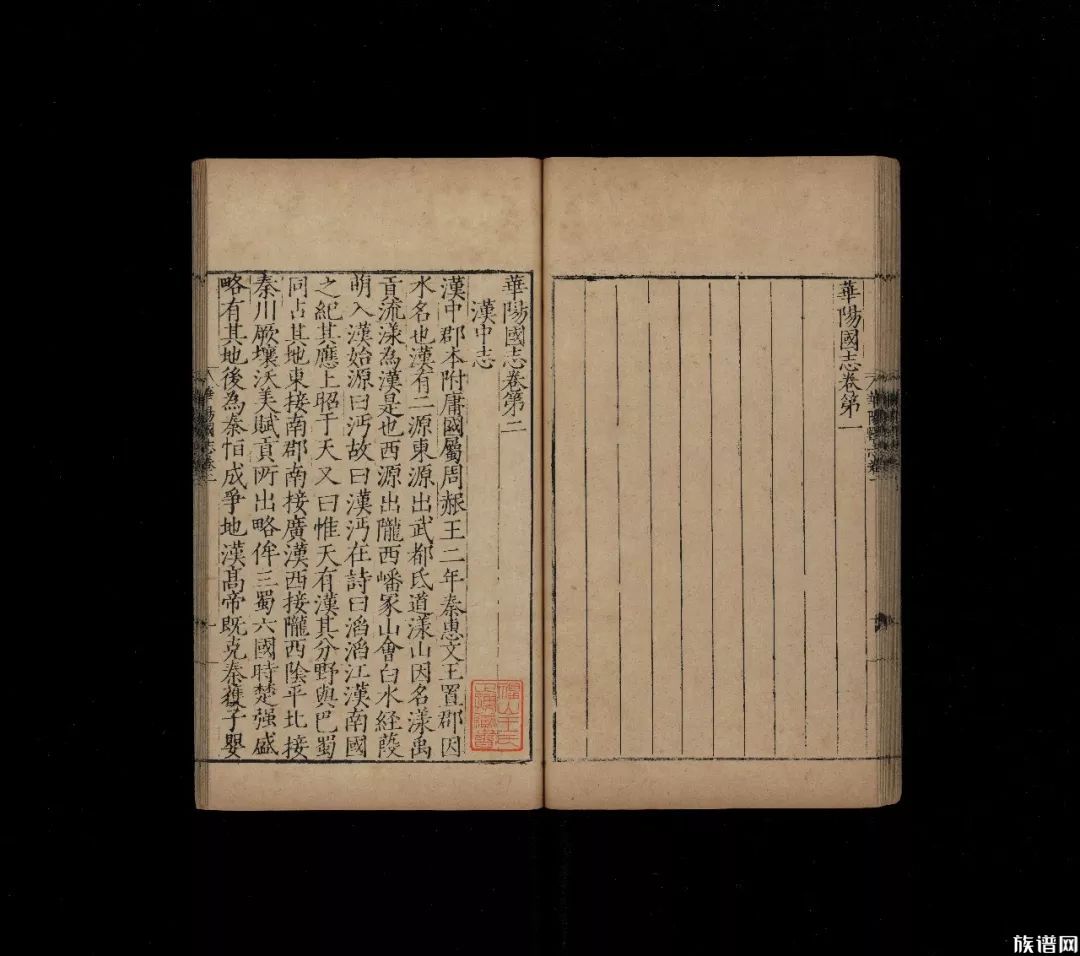 華陽國志卷第一
華陽國志卷第二
漢中志
漢中郡本附庸國屬周赧王二年秦惠文王置郡因
水名也漢有二源東源出武都氐道漾山因名漾禹
貢流漾為漢是也西源出隴西嶓冢山會白水經葭
萌入漢始源曰沔故曰漢沔在詩曰滔滔江漢南國
之紀其應上昭于天又曰惟天有漢其分野與巴蜀
同占其地東接南郡南接廣漢西接隴西陰平北接
秦川厥壤沃美賦貢所出略侔三蜀六國時楚强盛
略有其地後為秦怕成爭地漢髙帝既克秦獲子嬰
族谱网